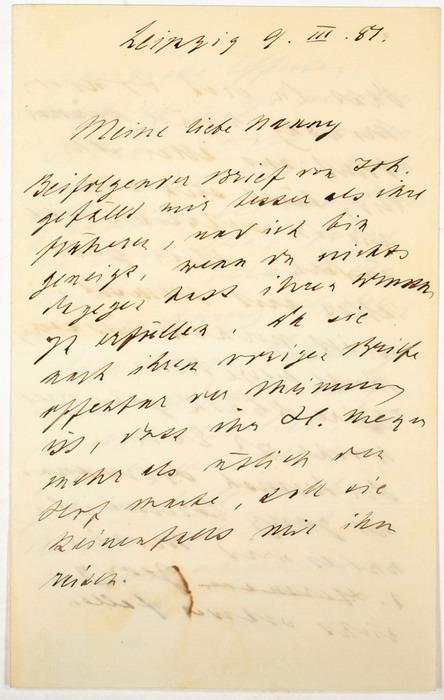 Leipzig 9. III. 81.
Meine liebe Nanny
Beifolgender Brief von Joh.
gefällt mir besser als ihre
früheren, und ich bin
geneigt, wenn du nichts
dagegen hast ihren Wunsch
zu erfüllen. Da sie
nach ihrem vorigen Briefe
offenbar der Meinung
ist, dass ihr H. Meyer
mehr als üblich den
Hof mache, soll sie
keinenfalls mit ihm
reisen.